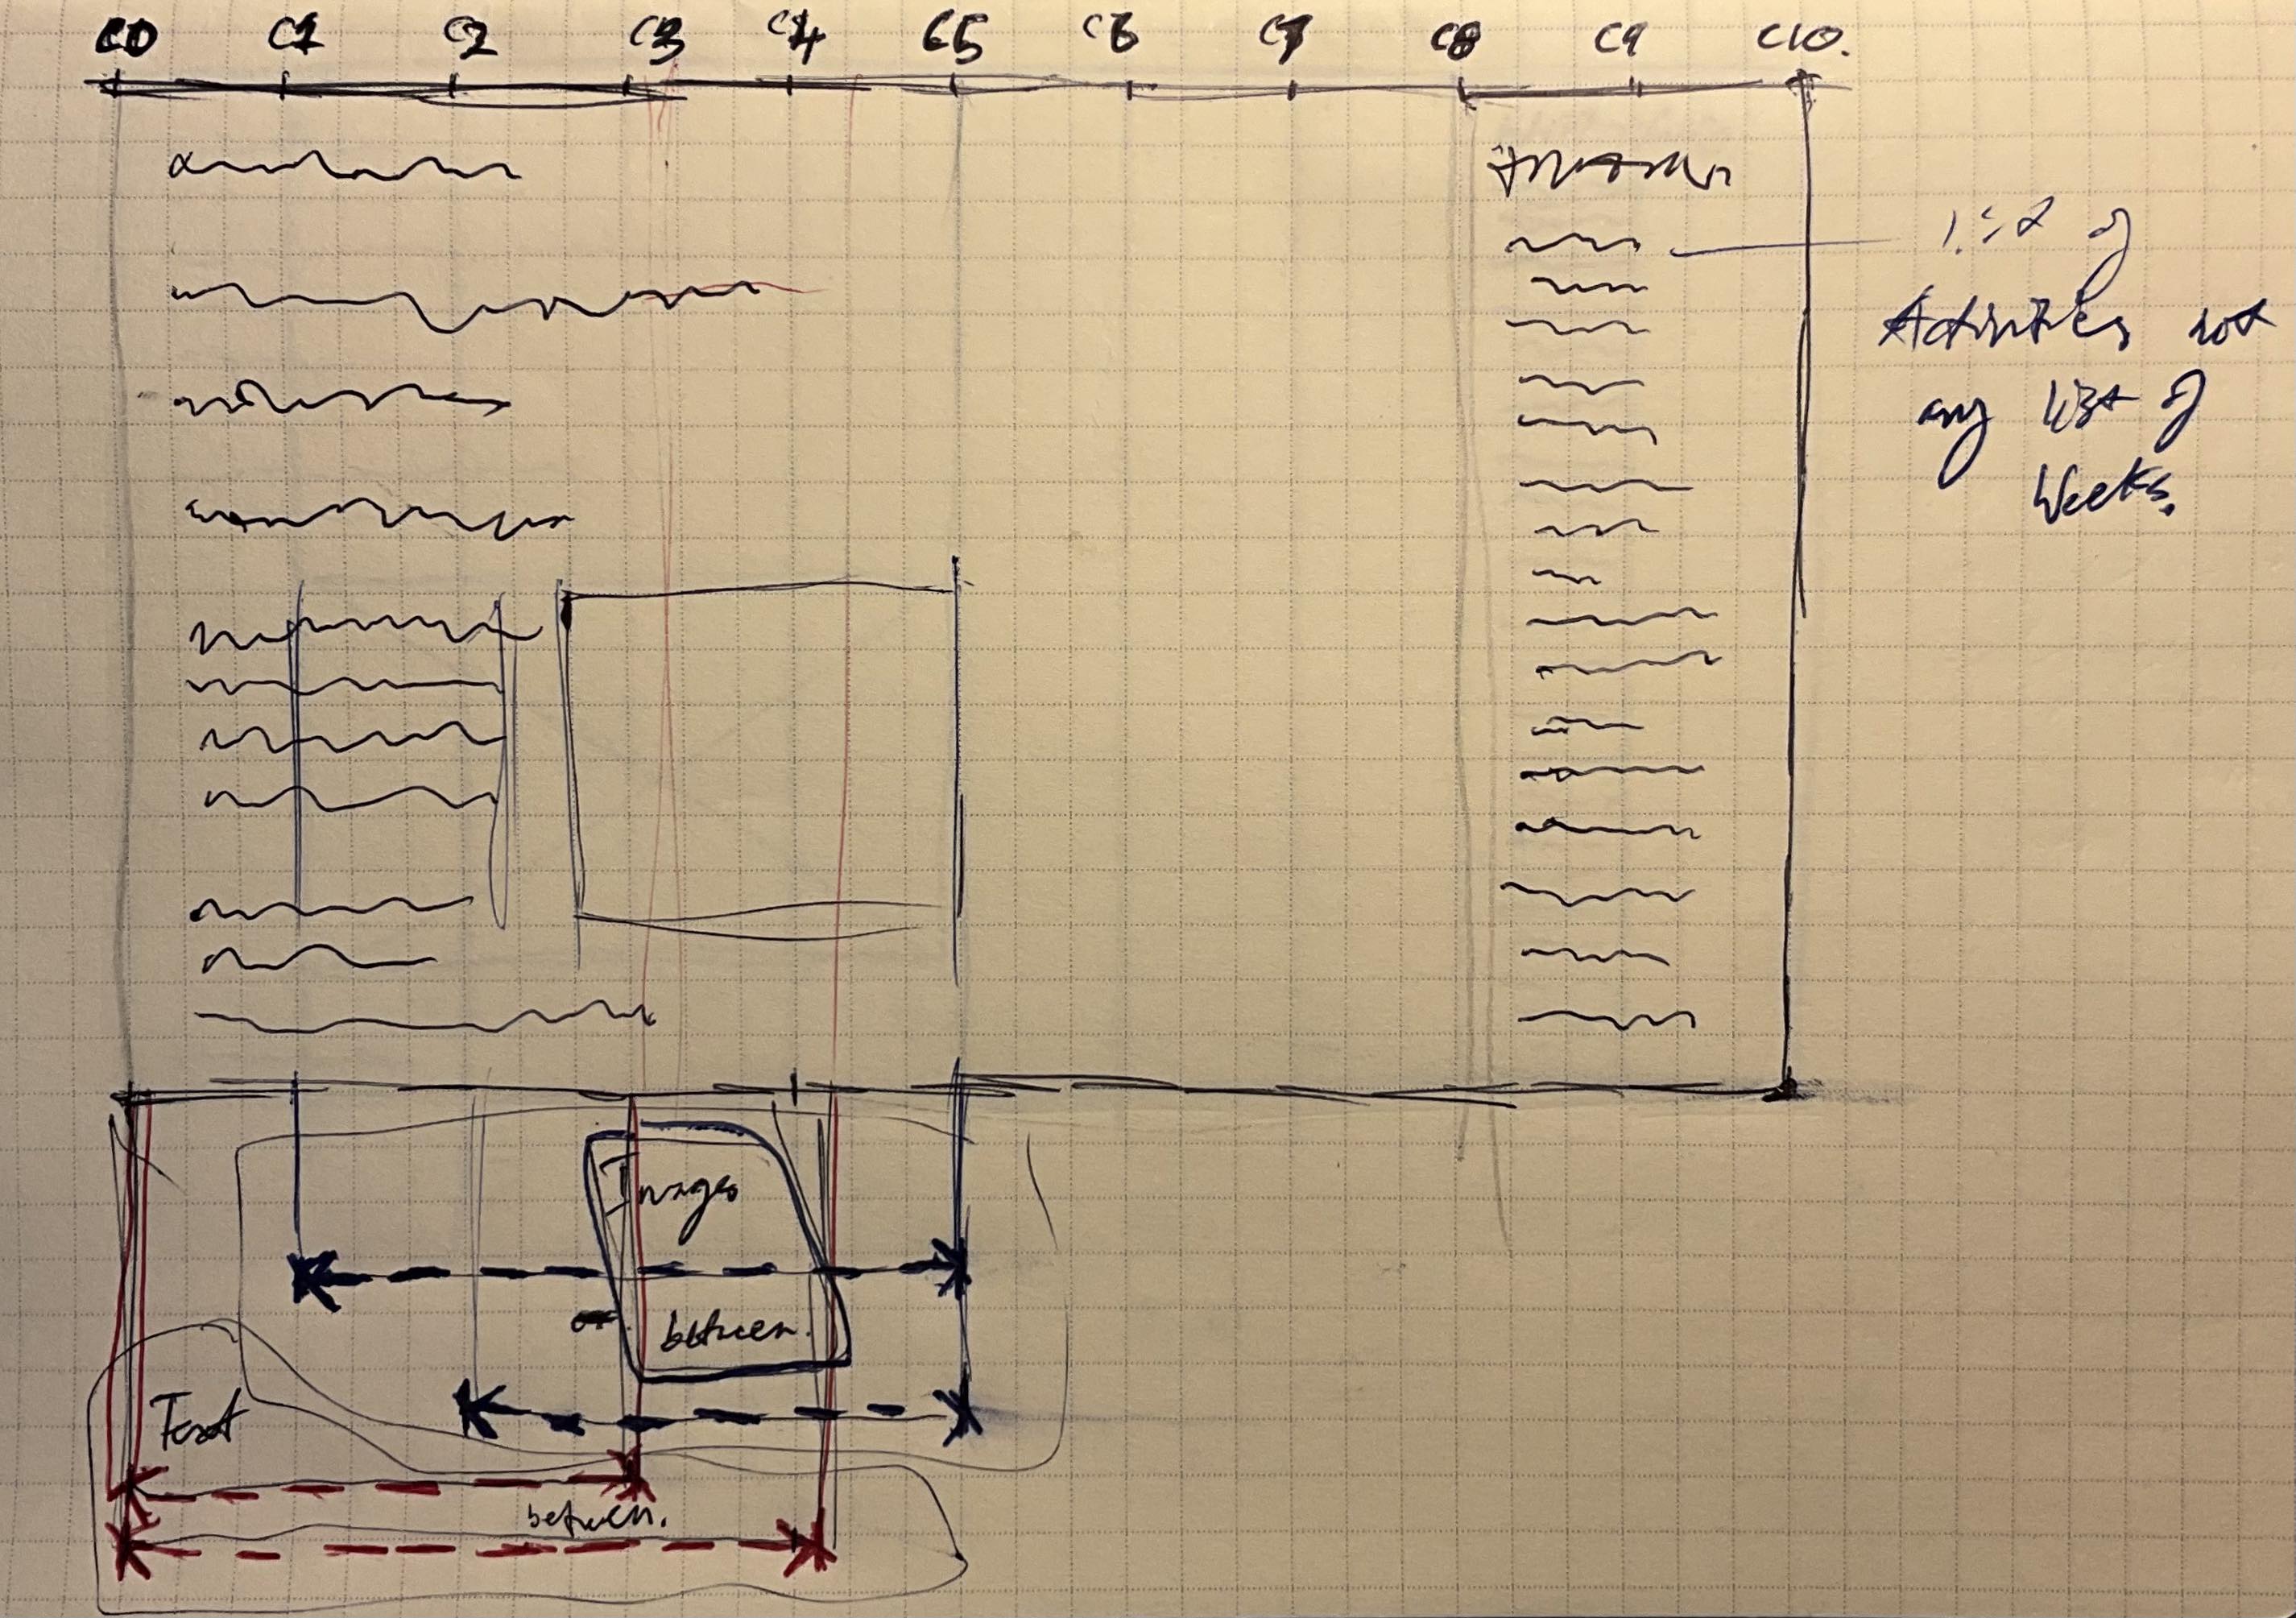 C0 C1 C2 C3 C4 C5 C6 C7 C8 C9 C10.
list of
Activities not
any list of
Weeks.
Images
between.
Text
between.